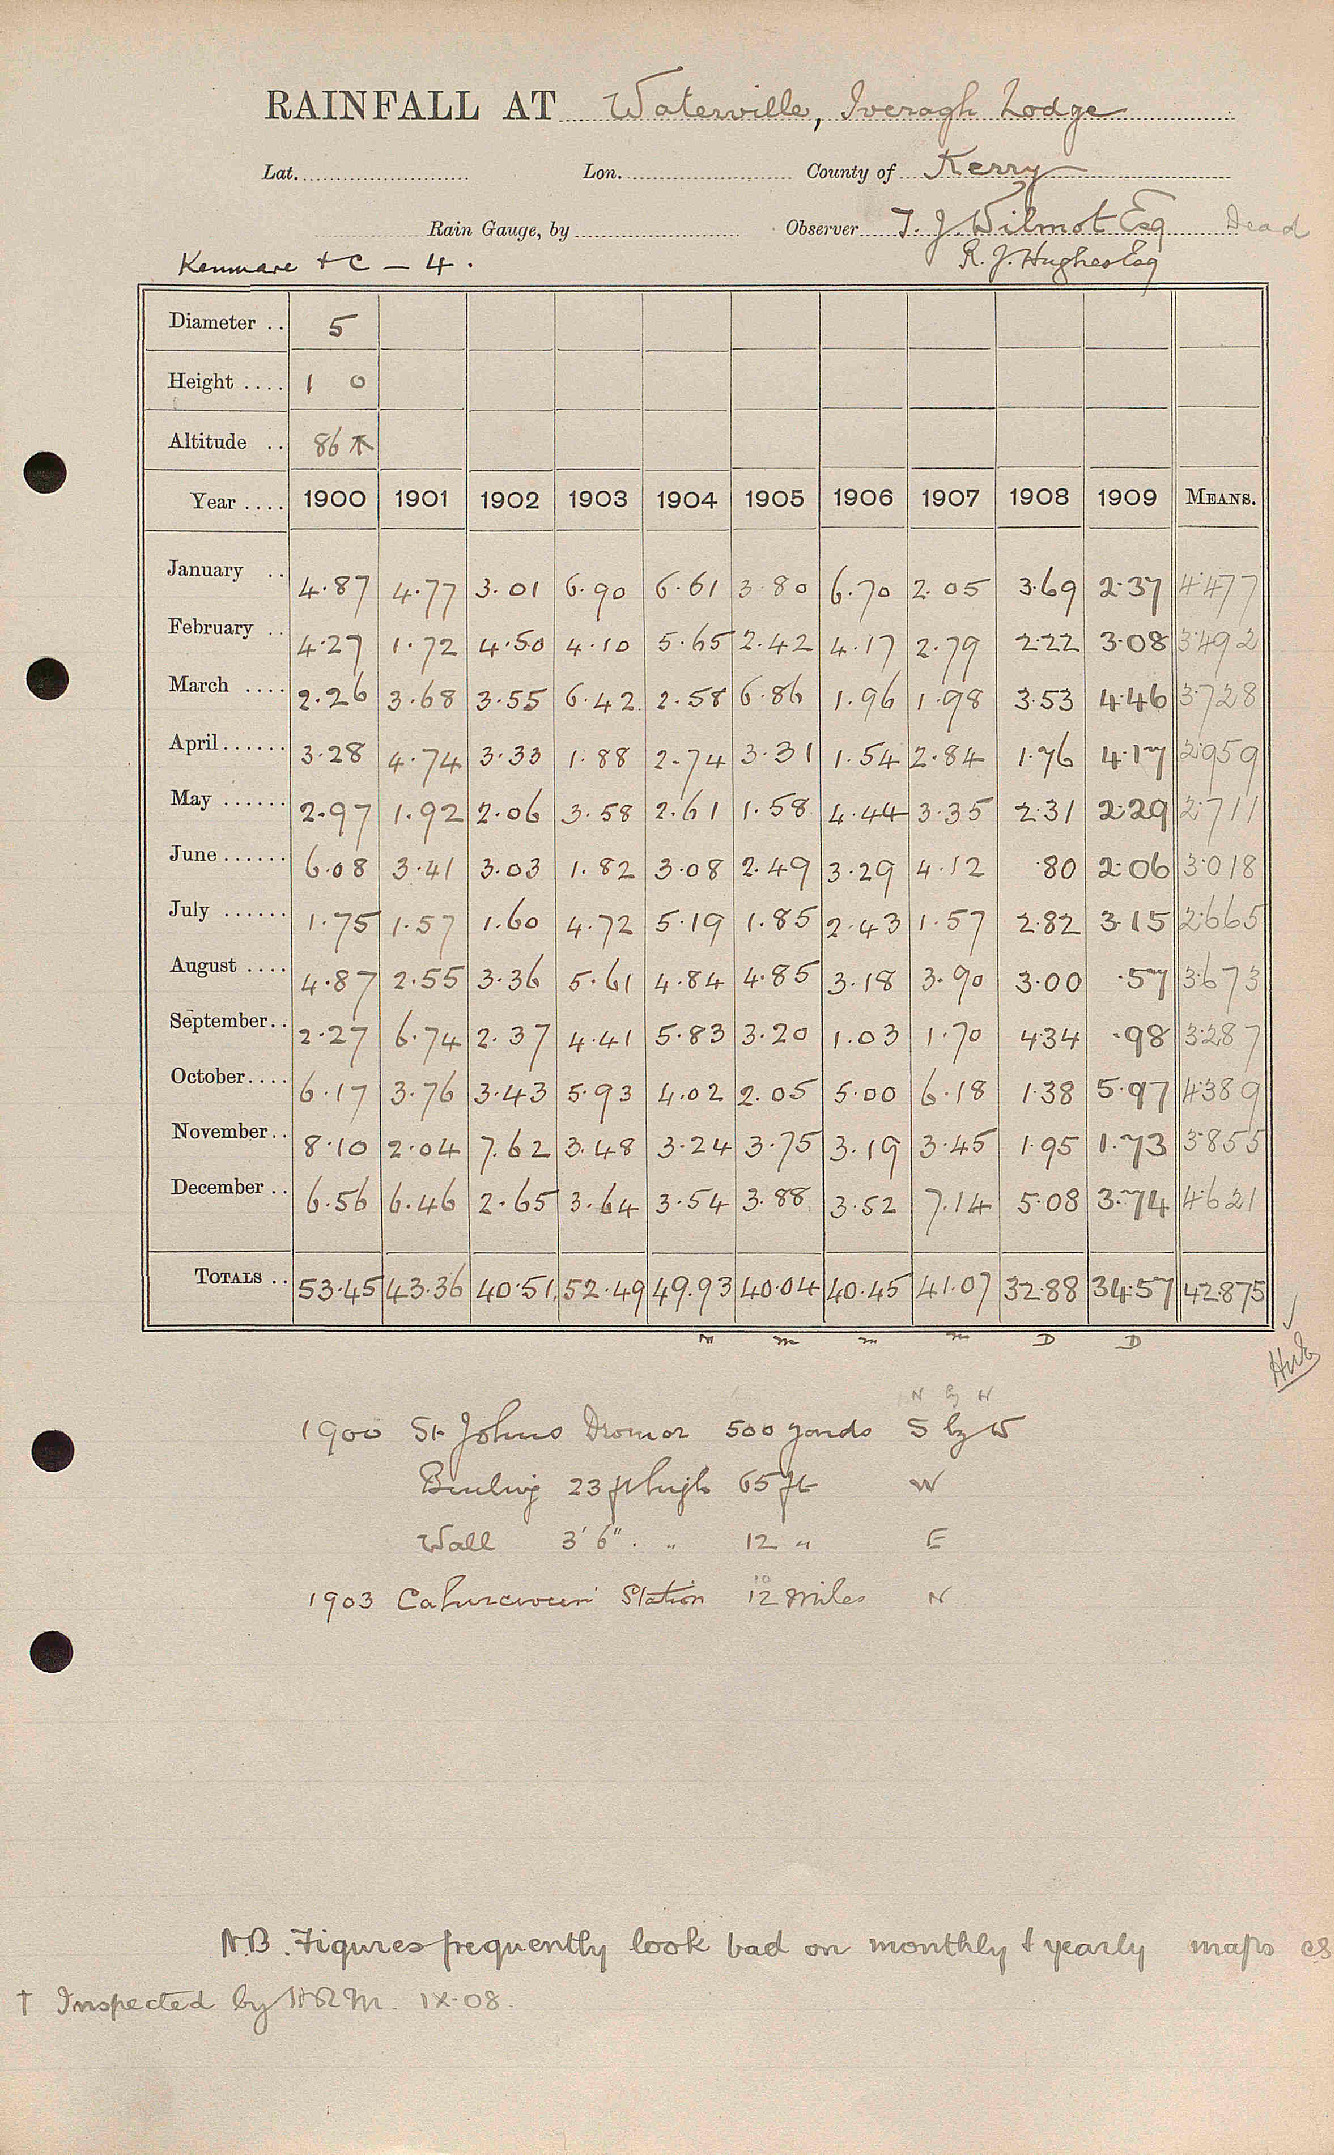 RAINFALL AT Waterville, Iveragh Lodge
Lat. Lon. County of Kerry
Rain Gauge, by Observer T. J. Wilmot Esq Dead
Kenmare & C — 4. R. J. Hughes Esq
Diameter .. 5
Height .... 1 0
Altitude .. 86
Year .... 1900 1901 1902 1903 1904 1905 1906 1907 1908 1909 MEANS.
January .. 4.87 4.77 3.01 6.90 6.61 3.80 6.70 2.05 3.69 2.37 4.477
February .. 4.27 1.72 4.50 4.10 5.65 2.42 4.17 2.79 2.22 3.08 3.492
March .... 2.26 3.68 3.55 6.42 2.58 6.86 1.96 1.98 3.53 4.46 3.728
April...... 3.28 4.74 3.33 1.88 2.74 3.31 1.54 2.84 1.76 4.17 2.959
May ...... 2.97 1.92 2.06 3.58 2.61 1.58 4.44 3.35 2.31 2.29 2.711
June...... 6.08 3.41 3.03 1.82 3.08 2.49 3.29 4.12 .80 2.06 3.018
July ...... 1.75 1.57 1.60 4.72 5.19 1.85 2.43 1.57 2.82 3.15 2.665
August .... 4.87 2.55 3.36 5.61 4.84 4.85 3.18 3.90 3.00 .57 3.673
September.. 2.27 6.74 2.37 4.41 5.83 3.20 1.03 1.70 4.34 .98 3.287
October.... 6.17 3.76 3.43 5.93 4.02 2.05 5.00 6.18 1.38 5.97 4.389
November.. 8.10 2.04 7.62 3.48 3.24 3.75 3.19 3.45 1.95 1.73 3.855
December .. 6.56 6.46 2.65 3.64 3.54 3.88 3.52 7.14 5.08 3.74 4.621
TOTALS .. 53.45 43.36 40.51 52.49 49.93 40.04 40.45 41.07 32.88 34.57 42.875
m m m D D
N by W
1900 St. Johns Dromor 500 yards S by W
23 ft high 65 ft W
Wall 3' 6" . „ 12 „ E
10
1903 Station 12 miles N
N.B. Figures frequently look bad on monthly & yearly maps
† Inspected by H.R.M. IX.08.